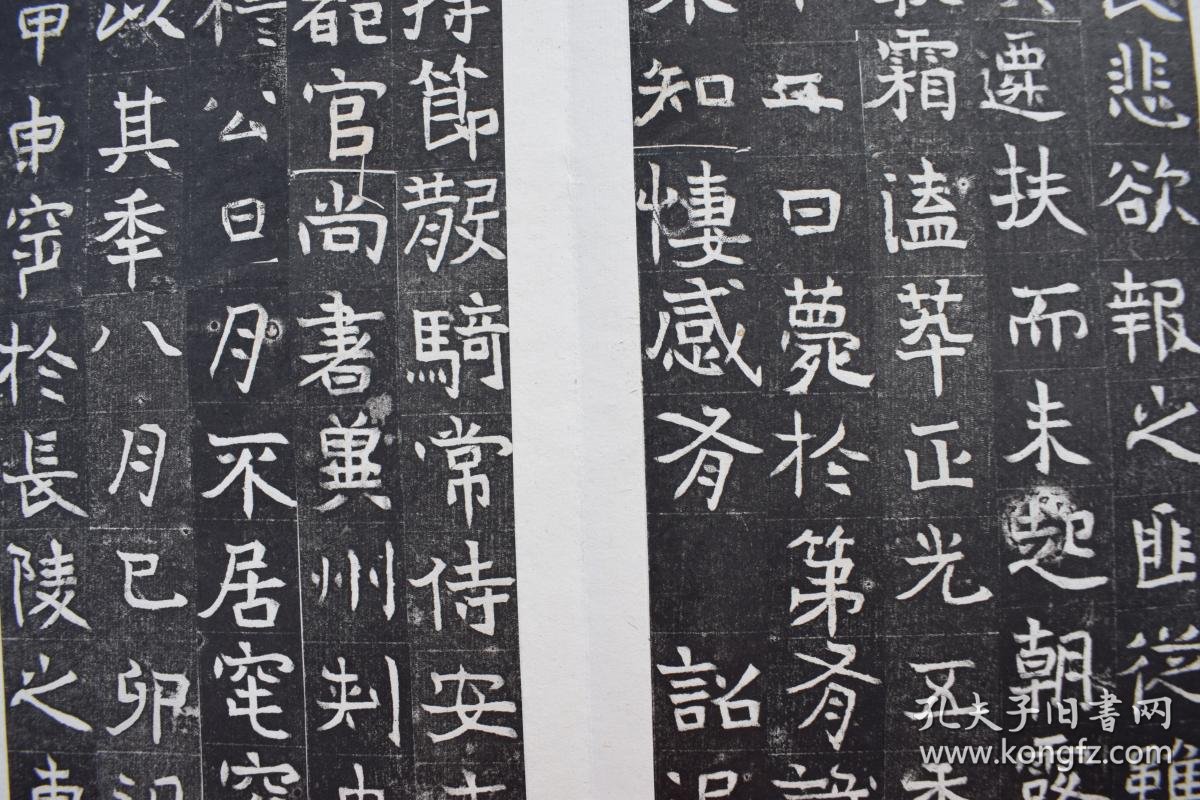 悲欲報之匪從雖
遷扶而未起朝露
霜溘萃正光五年
五日薨於第有識
知悽感有 詔
持節散騎常侍安
官尚書冀州刾
公日月不居窀穸
以其秊八月己卯
甲申窆於長陵之東
孔夫子旧書网
www.kongfz.com